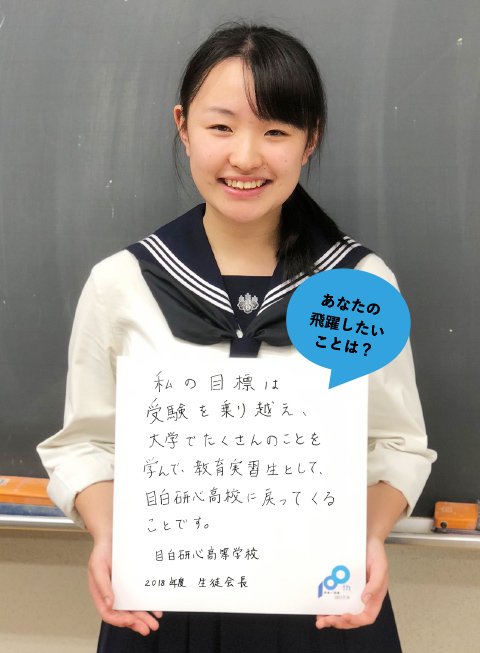 あなたの
飛躍したい
ことは？
私の目標は
受験を乗り越え、
大学でたくさんのことを
学んで、教育実習生として、
目白研心高校に戻ってくる
ことです。
目白研心高等学校
2018年度 生徒会長
100th